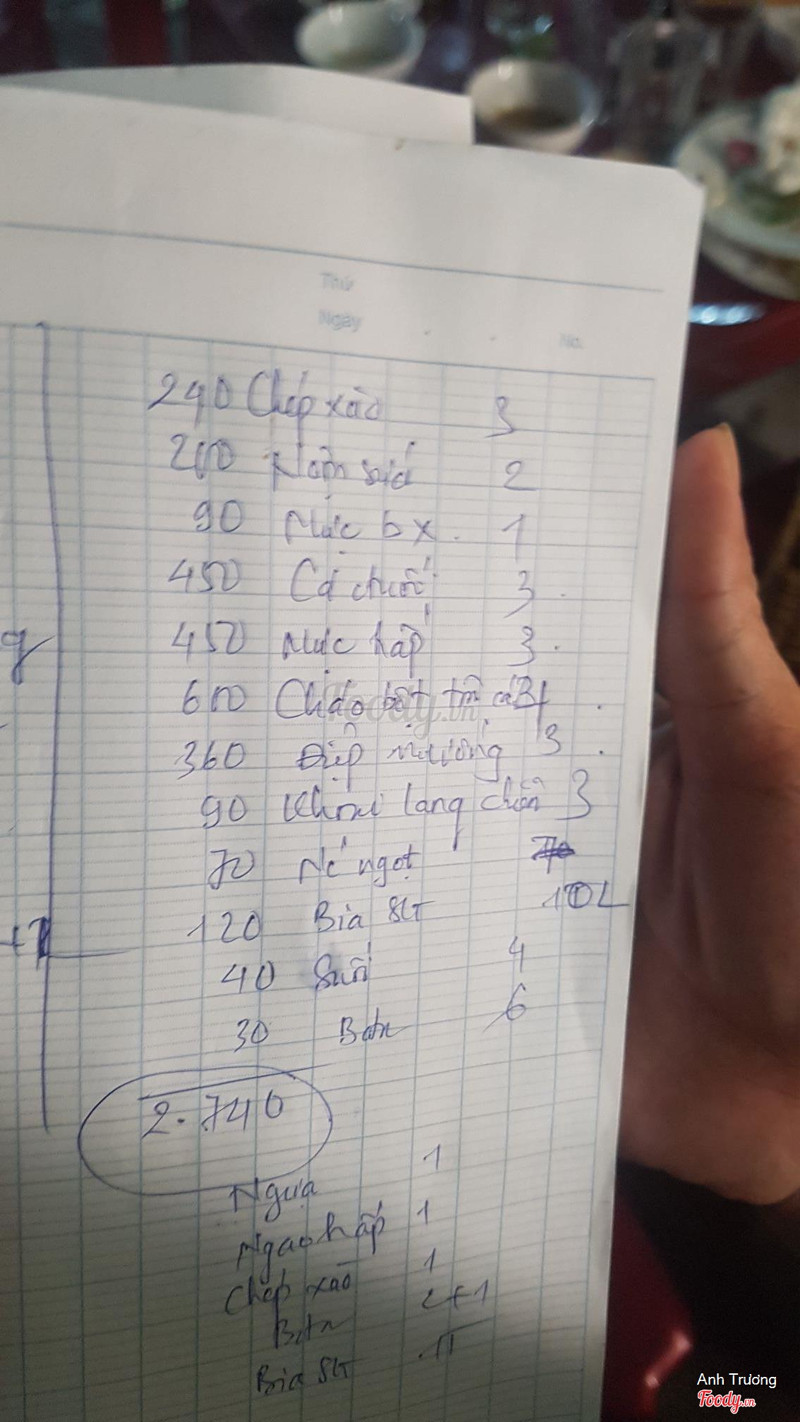 Thứ
Ngày
No.
240 Chép xào 3
200 Nộm sứa 2
90 Mực bx. 1
450 Cá chuối 3.
450 Mực hấp 3.
600 Cháo bột cá 3.
360 Điệp nướng 3.
90 Khoai lang chiên 3
70 Nc ngọt
120 Bia SG 10L
40 Suối 4
30 6
2.740
Ngựa 1
Ngao hấp 1
Chép xào 1
2+1
Bia SG
g
Foody.vn
Anh Trương
Foody.vn